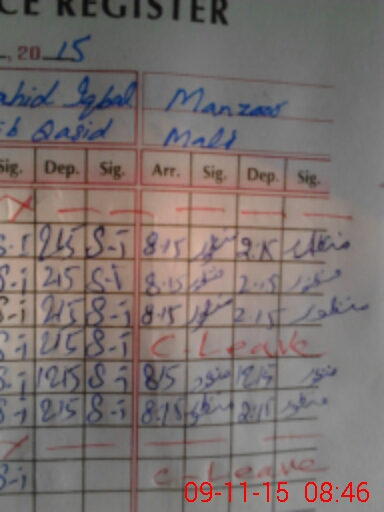 CE REGISTER
, 20 15
ahid Iqbal Manzoor
ib Qasid Mali
Sig. Dep. Sig. Arr. Sig. Dep. Sig.
S-i 215 S-i 8.15 منظور 2.15 منظور
S-i 215 S-i 8.15 منظور 2.15 منظور
S-i 215 S-i 8.15 منظور 2.15 منظور
S-i 215 S-i C-Leave
S-i 1215 S-i 815 منظور 1215 منظور
S-i 215 S-i 8.15 منظور 2.15 منظور
S-i C-Leave
09-11-15 08:46